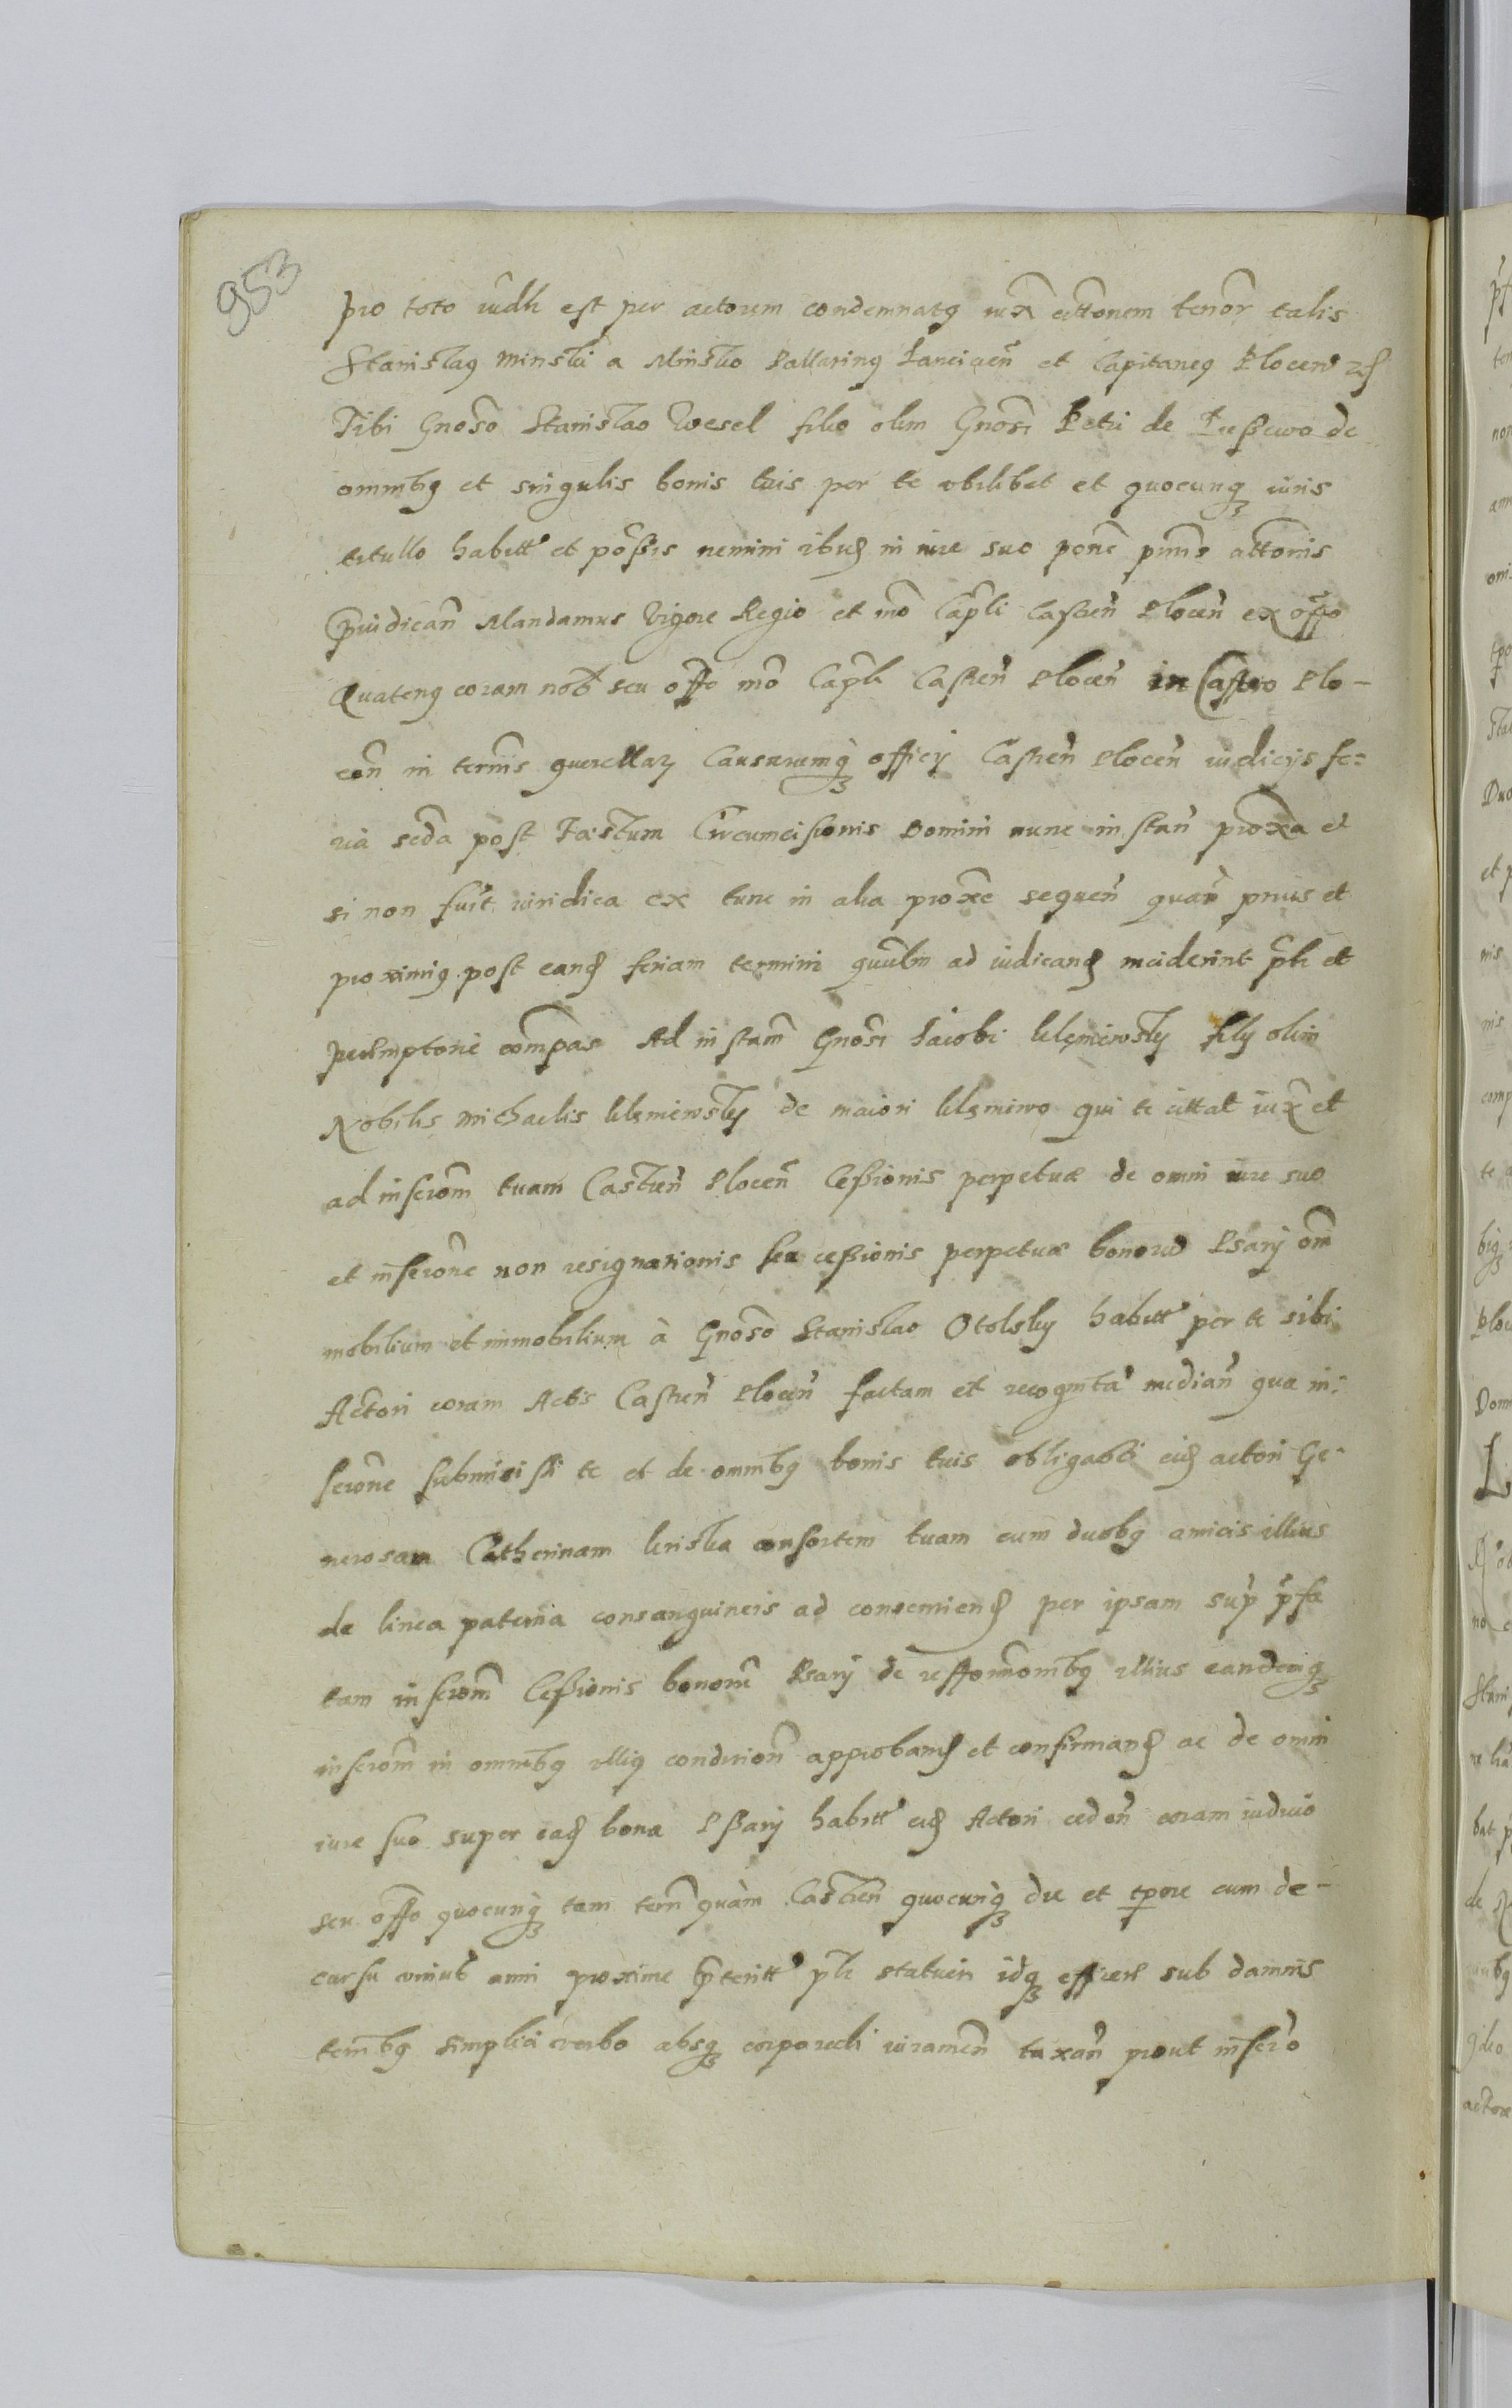 953
pro toto iudli est per actorem condemnatq iuxa cittonem tenor talis
Stanislaq Minski a Minsko Pallatinq Lanciciẽn et Capitaneq Plocen
Tibi Gnoso Stanislao Wesel filio olim Gnosi Petri de de
omnibq et singulis bonis tuis per te vbilibet et quocunqz iuris
titullo habitt et possis nemini in iure suo pone pnñs attonis
Mandamus Vigore Regio et mõ Capli Castren Plocen ex offo
Quatenq coram nob seu offo mõ Capli Castren Plocen in Castro Plo-
cen in termis querellarz Causarumqz officij Castren Plocen iudicijs fe-
ria scda post Fæstum Circumcisionis Domini nunc instan proxa et
si non fuit iuridica ex tunc in alia proxe sequen prius et
proximiq post eand feriam termini ad iudicand inciderint plr et
peremptorie compas Ad instam Gnosi Jacobi filij olim
Nobilis Michaelis de maiori qui te cittat iuxa et
ad inscrom tuam Castren Plocen Cessionis perpetuæ de omni iure suo
et inscrone non resignationis seu cessionis perpetuæ bonoru Psarij om
mobilium et immobilium à Gnoso Stanislao Otolsky habitt per te sibi
Actori coram Actis Castren Plocen factam et recognita median qua in-
scrone submisisti te et de omnibq bonis tuis obligasti eid actori Ge-
nerosam Catherinam consortem tuam cum duobq amicis illius
de linea paterna consanguineis ad consentiend per ipsam sup pfa
tam inscrom Cessionis bonorum Psarij de illius eandemqz
inscrom in omnibq illiq condition approband et confirmand ac de omni
iure suo super ead bona Psarij habitt eid Actori ceden coram iudicio
seu offo quocunqz tam terri quàm Castren quocunqz die et tpore cum de-
cursu vnius anni proxime pteritt plr statuere idqz efficere sub damnis
temibq simplici verbo absqz corporali iuramen taxan prout inscro